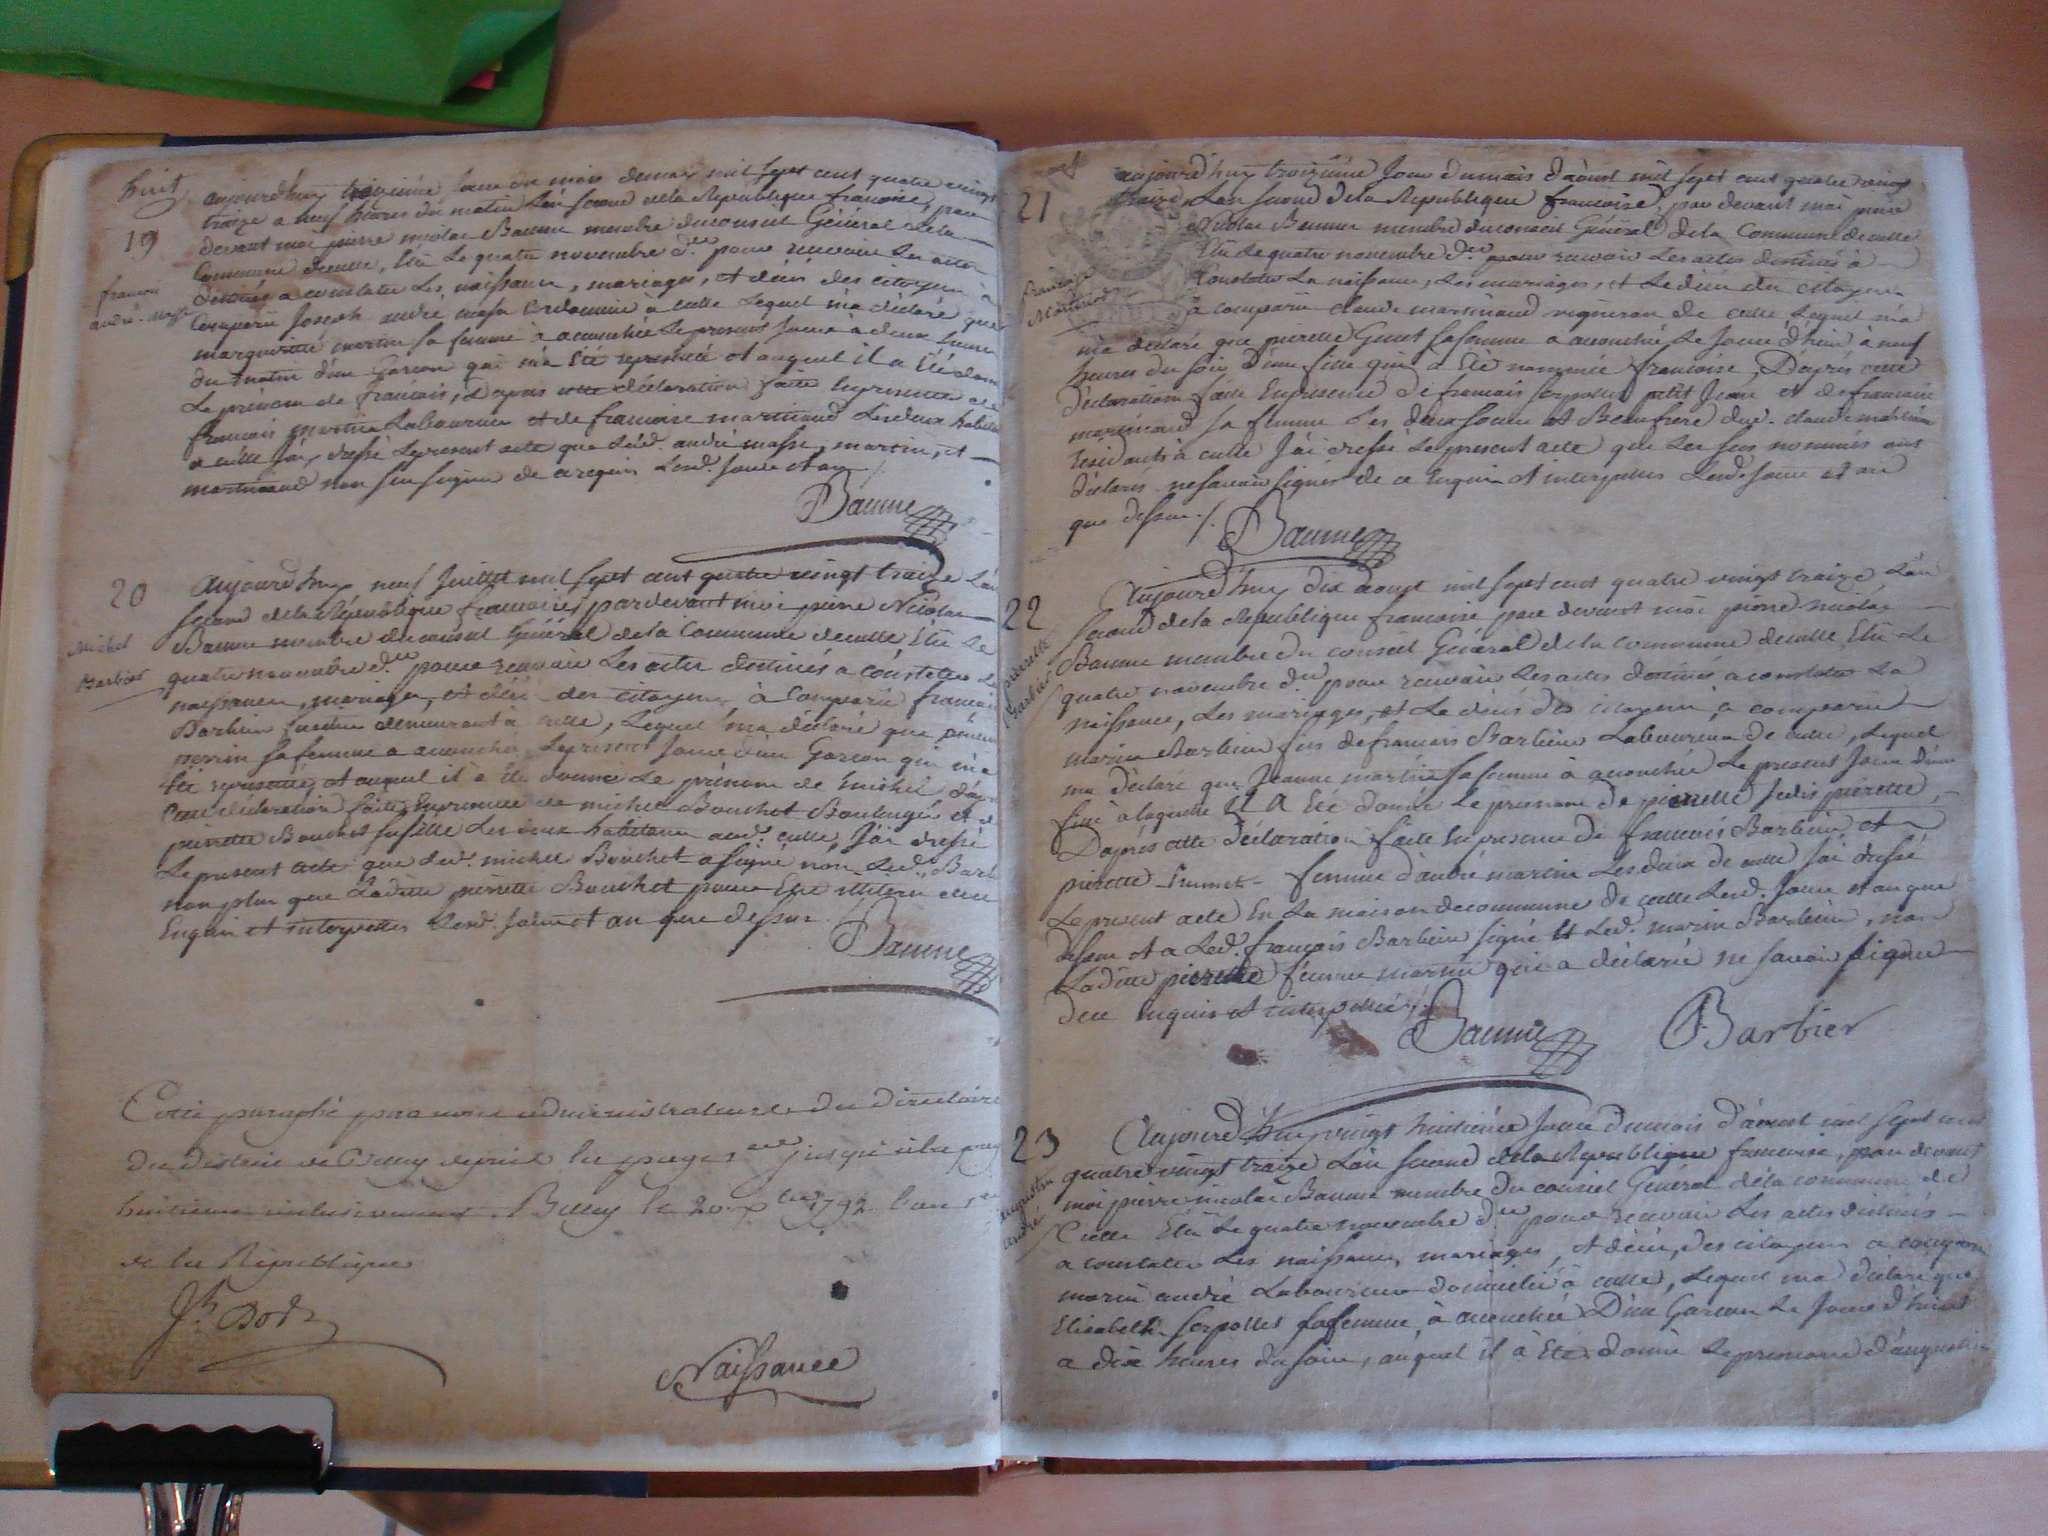 huit
19
françois
andré-masse
aujourd'huy jour du mois de may mil sept cent quatre vingt
traize a heures du matin L'an second de la République françoise, par
devant moi pierre nicolas Baume membre du conseil Général de la
Commune de culle, Elû Le quatre novembre d.er pour recevoir Les actes
destinés a constater Les naissances, mariages, et décès des citoyens à
Comparu Joseph andré masse Cordonnier à culle Lequel m'a déclaré que
margueritte martin sa femme à accouchée Le present Jour à deux heures
du matin d'un Garçon qui m'a Eté representé et auquel il a Eté donné
Le prénom de francois, d'apres cette déclaration faite En presence de
francois martin Laboureur et de francoise martinand Les deux habitants
a culle J'ai dressé Le present acte que Led. andré masse, martin, et
martinand non seu signer de ce requis Lesd. Jour et an /.
Baume
20
Michel
Barbier
Aujourd'huy neuf Juillet mil sept cent quatre vingt traize L'an
second de la République francoise, pardevant moi pierre Nicolas
Baume membre du conseil Général de la Commune de culle Elû Le
quatre novembre d.er pour recevoir Les actes destinés a constatter Les
naissances, mariages, et décès des citoyens à Comparu francois
Barbier demeurant à culle, Lequel m'a déclaré que
perrin sa femme a accouchée Le present Jour d'un Garçon qui m'a
Eté representé, et auquel il a Eté donné Le prénom de michel d'après
Cette déclaration faite En presence de michel Bouchet Boulangé et de
pierrette Bouchet sa fille Les deux habitans aud. culle J'ai dressé
Le present acte que Led. michel Bouchet a signé non Led. Barbier
non plus que Laditte pierrette Bouchet pour Etre illiteré de ce
Enquis et interpellés Lesd. Jour et an que dessus.
Baume
Cotté paraphé par nous administrateurs du Directoire
du District de Belley depuis la page 1.ere jusqu'à la page
huitieme inclusivement. Belley le 20 X.bre 1792 l'an 1.er
de la République
J.h Dod
Naissance
21
françoise
Martinand
aujourd'huy troizième Jour du mois d'aoust mil sept cent quatre vingt
traize, L'an second de la République francoise, par devant moi pierre
Nicolas Baume membre du conseil Général de la Commune de culle
Elû Le quatre novembre d.er pour recevoir Les actes destinés à
Constater La naissance, Les mariages, et Le décès des citoyens
à comparu claude martinand vigneron de culle Lequel m'a
m'a déclaré que pierrette Genet sa femme a accouchée Le Jour d'hier à neuf
heures du soir d'une fille qui a Eté nommée francoise, D'après cette
déclaration faite En presence de francois serpollet petit Jean et de francoise
martinand sa femme Les deux soeur et Beaufrere dud. claude martinand
residants à culle J'ai dressé Le present acte que Les sus nommés ont
déclarés ne savoir signer de ce Enquis et interpellés Lesd. Jour et an
que dessus /.
Baume
22
pierrette
Barbier
Aujourd'huy dix aoust mil sept cent quatre vingt traize L'an
second de la République francoise par devant moi pierre nicolas
Baume membre du conseil Général de la commune de culle Elû Le
quatre novembre d.er pour recevoir Les actes destinés a constater La
naissance, Les mariages, et Le décès des citoyens, à comparu
marin Barbier fils de francois Barbier Laboureur de culle, Lequel
m'a déclaré que Jeanne martin sa femme à accouchée Le present Jour d'une
fille a laquelle Il a Eté donné Le prénom de pierrette Jedis pierette,
D'après cette déclaration faite En presence de francois Barbier et
pierette femme d'andré martin Les deux de culle J'ai dressé
Le present acte En La maison de commune de culle Lesd. Jour et an que
dessus et a Led. francois Barbier signé et Led. marin Barbier, non
Laditte pierette femme martin qui a déclaré ne savoir signer
de ce enquis et interpellé /.
Baume Barbier
23
augustin
andré
Aujourd'huy vingt huitième Jour du mois d'aoust mil sept cent
quatre vingt traize L'an second de la République francoise, par devant
moi pierre nicolas Baume membre du conseil Général de la commune de
Culle Elû Le quatre novembre d.er pour recevoir Les actes destinés
a constatter Les naissances, mariages, et décès, des citoyens a comparu
marin andré Laboureur domicilié à culle, Lequel m'a déclaré que
Elisabeth serpollet sa femme, à accouchée D'un Garçon Le Jour d'hier
a dix heures du soir, auquel il à Eté donné Le prénom d'augustin